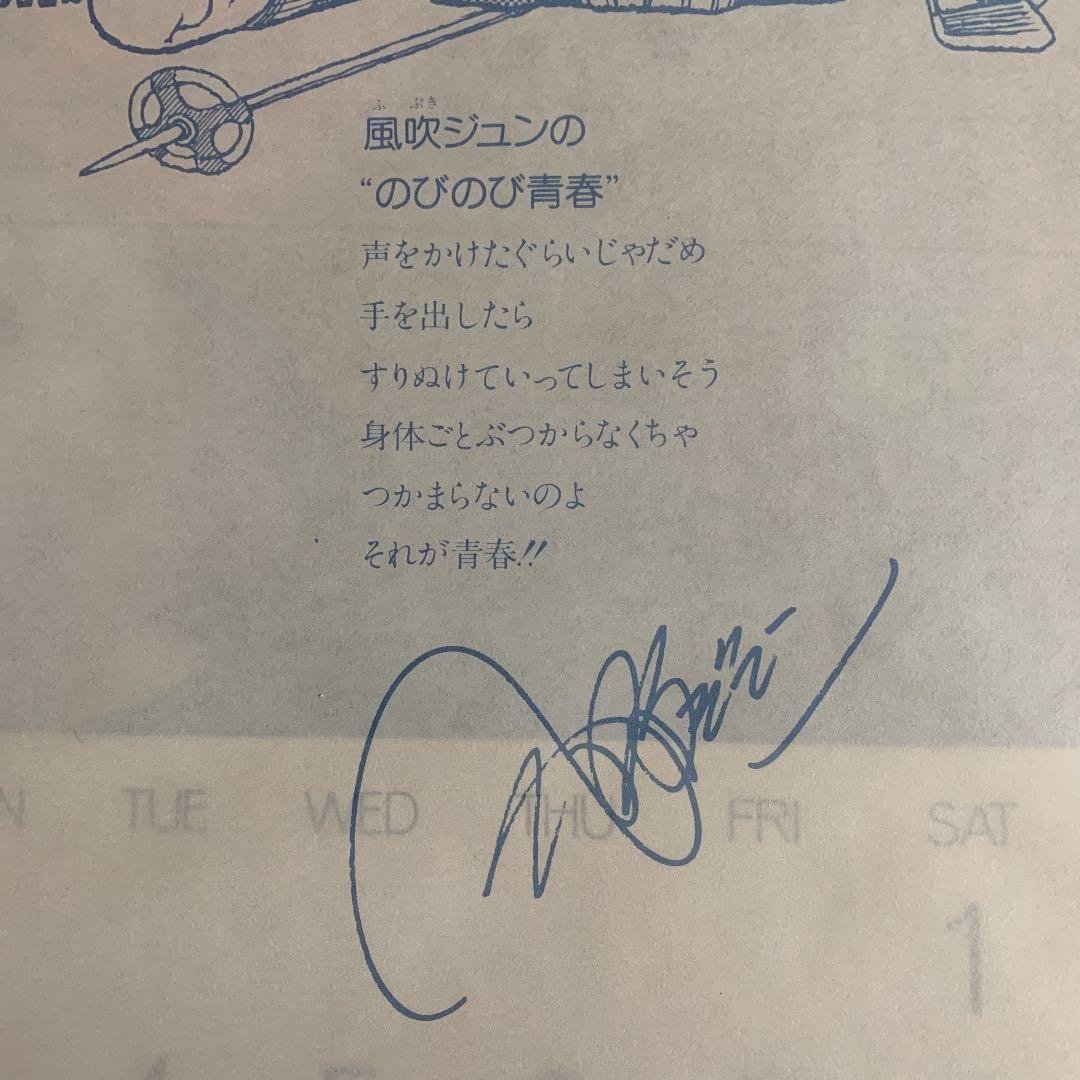 ふ ぶき
風吹ジュンの
“のびのび青春”
声をかけたぐらいじゃだめ
手を出したら
すりぬけていってしまいそう
身体ごとぶつからなくちゃ
つかまらないのよ
それが青春!!
TUE WED THU FRI SAT
1